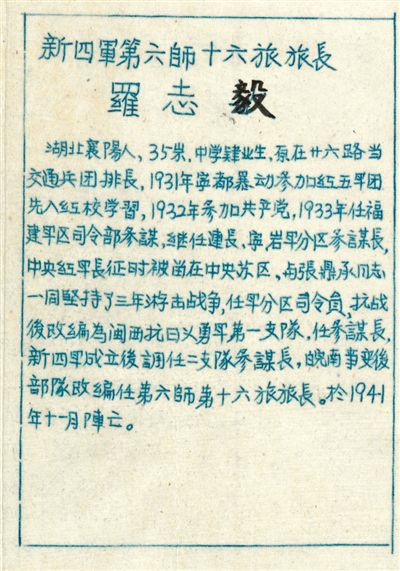 新四軍第六師十六旅旅長
羅志毅
湖北襄陽人，35岁，中学肄业生，原在廿六路当
交通兵团排長，1931年寧都暴动参加紅五军团
先入紅校学習，1932年参加共产党，1933年任福
建军区司令部参謀，継任連長，寧、岩军分区参謀長，
中央紅军長征时被留在中央苏区，与張鼎承同志
一同堅持了三年游击战争，任军分区司令員，抗战
後改編為闽西抗日义勇军第一支隊，任参謀長，
新四军成立後調任二支隊参謀長，皖南事变後
部隊改編任第六師第十六旅旅長。於1941
年十一月陣亡。